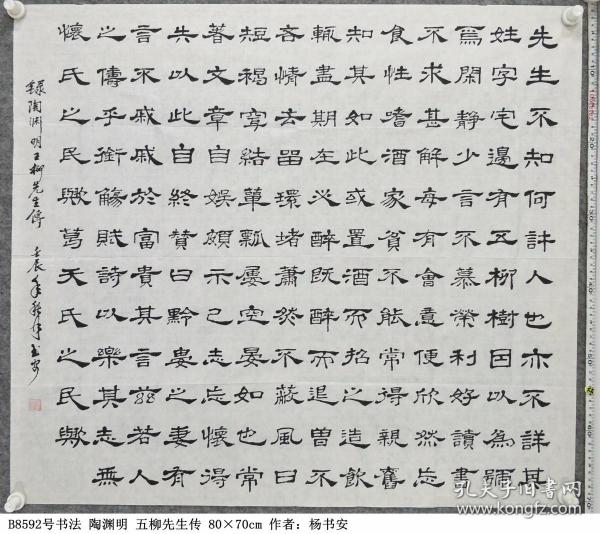 先生不知何許人也亦不詳其
姓字宅邊有五柳樹因以為號
焉閑靜少言不慕榮利好讀書
不求甚解每有會意便欣然忘
食性嗜酒家貧不能常得親舊
知其如此或置酒而招之造飲
輒盡期在必醉既醉而退曾不
吝情去留環堵蕭然不蔽風日
短褐穿結簞瓢屢空晏如也常
著文章自娛頗示己志忘懷得
失以此自終贊曰黔婁之妻有
言不戚戚於富貴其言茲若人
之儔乎銜觴賦詩以樂其志無
懷氏之民歟葛天氏之民歟
錄陶淵明五柳先生傳 壬辰年秋月书安
孔夫子旧书网
B8592号书法 陶渊明 五柳先生传 80×70cm 作者：杨书安